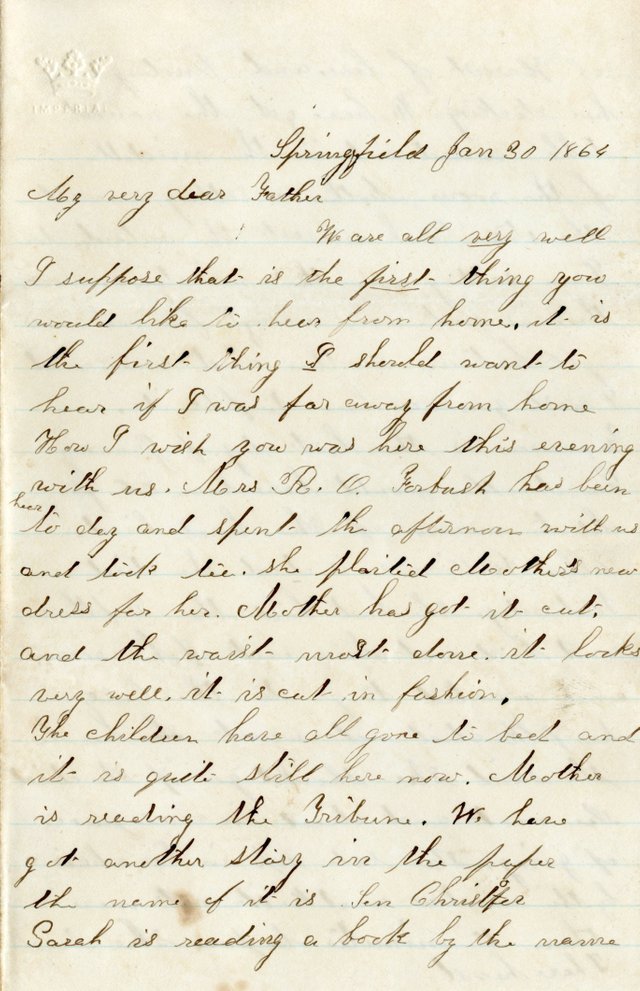 IMPERIAL
Springfield Jan 30 1864
My very dear Father
We are all very well
I suppose that is the first thing you
would like to hear from home. it is
the first thing I should want to
hear if I was far away from home
How I wish you was here this evening
with us. Mrs R. O. Forbush has been
hear
to day and spent the afternoon with us
and took tea. she plaited Mother's new
dress for her. Mother has got it cut.
and the waist most done. it looks
very well. it is cut in fashion.
The children have all gone to bed and
it is quite still here now. Mother
is reading the Tribune. We have
got another story in the paper
the name of it is
Sarah is reading a book by the name